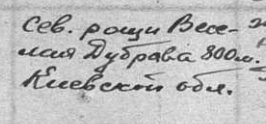 Сев. рощи Весе-
лая Дубрава 800м.
Киевской обл.